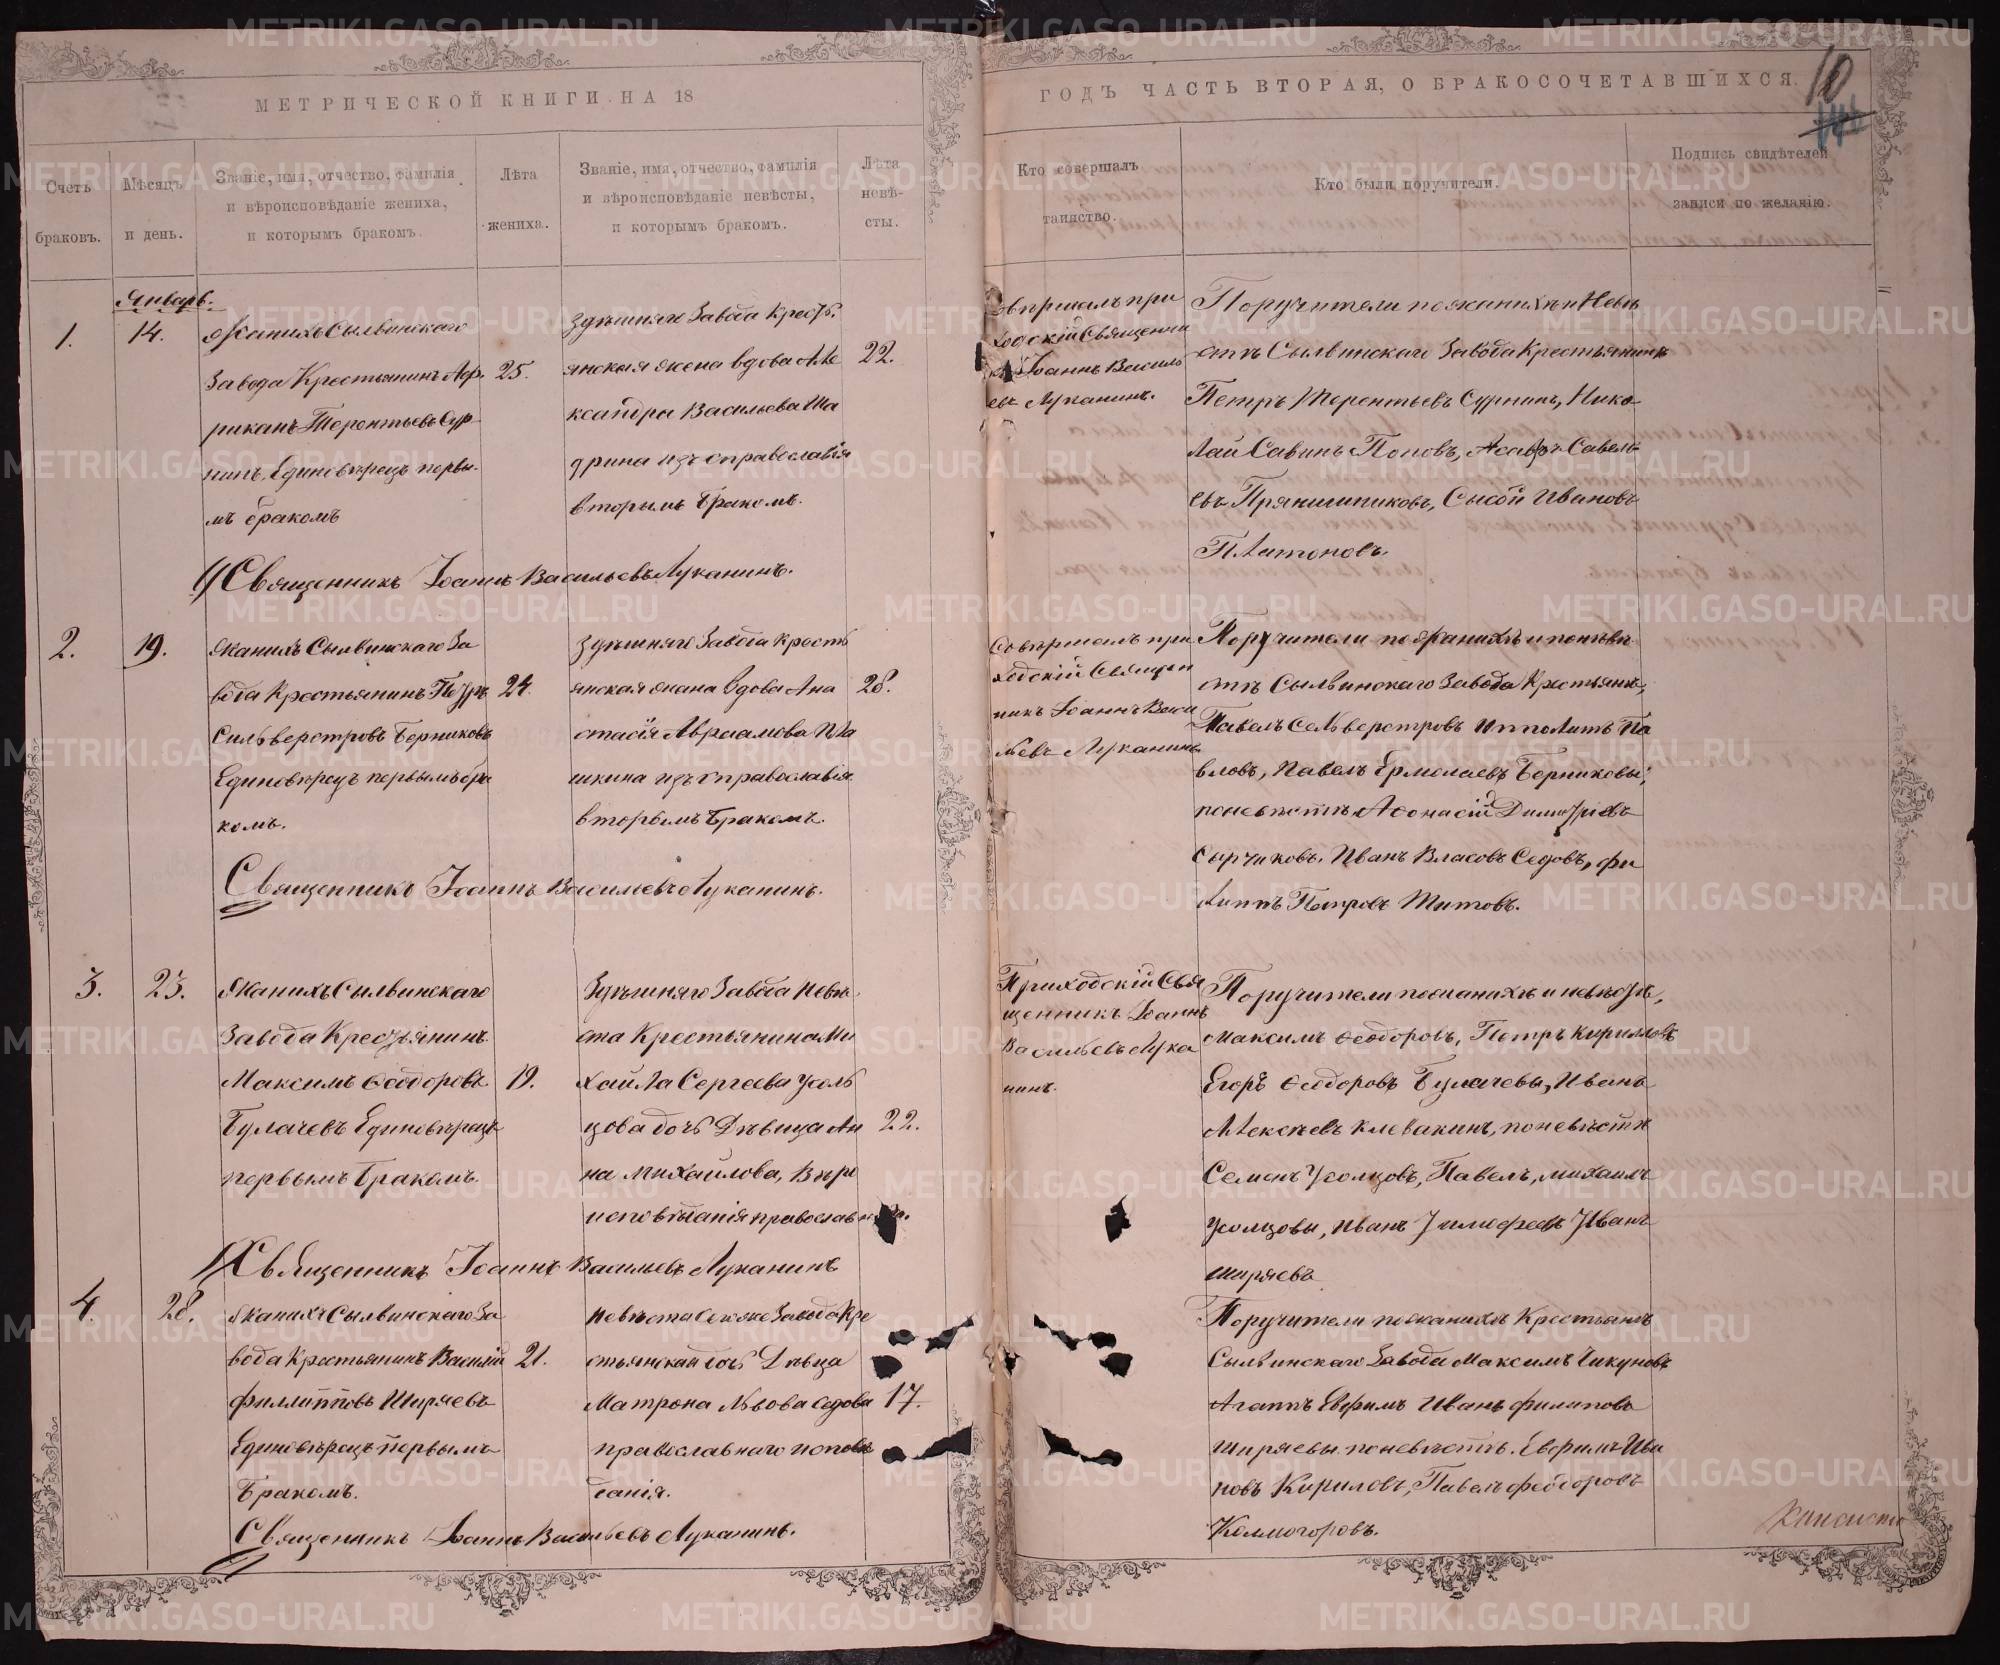 МЕТРИЧЕСКОЙ КНИГИ НА 18
ГОДЪ ЧАСТЬ ВТОРАЯ, О БРАКОСОЧЕТАВШИХСЯ.
10
Счетъ браковъ.
Мѣсяцъ и день.
Званіе, имя, отчество, фамилія
и вѣроисповѣданіе жениха,
и которымъ бракомъ.
Лѣта жениха.
Званіе, имя, отчество, фамилія
и вѣроисповѣданіе невѣсты,
и которымъ бракомъ.
Лѣта невѣ-
сты.
Кто совершалъ
таинство.
Кто были поручители.
Подпись свидѣтелей
записи по желанію.
Январь.
1.
14.
Жанихъ Сылвинскаго
Завода Крестьянинъ
Терентьевъ Сур
нинъ Единовѣрецъ первы
мъ бракомъ
25.
Здѣшняго Завода Крест
янская жена вдова Але
ксандра Васильева Ша
дрина изъ православія
вторымъ бракомъ.
22.
ходскій Священни
Іоаннъ Василь
евъ Луканинъ.
Поручители пожаниху и Невѣ
стѣ Сылвинскаго Завода Крестьянинъ
Петръ Терентьевъ Сурнинъ, Нико
лай Савинъ Поповъ, Асафъ Савель
евъ Прянишниковъ, Сысой Ивановъ
Платоновъ.
Священникъ Іоаннъ Васильевъ Луканинъ.
2.
19.
Жанихъ Сылвинскаго За
вода Крестьянинъ Петръ
Сильверстровъ Берниковъ
Единовѣрецъ первымъ бра
комъ.
24.
Здѣшняго Завода крестъ
янская жана вдова Ана
стасія Авраамова Па
шкина изъ православія
вторымъ бракомъ.
28.
Совершалъ при
ходскій Священ
никъ Іоаннъ Васи
льевъ Луканинъ
Поручители пожанихъ и поневѣ
стѣ Сылвинскаго Завода Крестьянъ,
Павелъ Селверстровъ Ипполитъ Па
вловъ, Павелъ Ермолаевъ Берниковы;
поневѣстѣ Афонасій Димитріевъ
Сырчиковъ. Иванъ Власовъ Седовъ, фи
липпъ Петровъ Титовъ.
Священникъ Іоаннъ Васильевъ Луканинъ.
3.
23.
Жанихъ Сылвинскаго
Завода Крестьянинъ
Максимъ Ѳеодоровъ
Булачевъ Единовѣрецъ
первымъ бракомъ.
19.
Здѣшняго Завода невѣ
ста Крестьянина Ми
хайла Сергеева Усоль
цова дочь Дѣвица Ан
на Михайлова, Вѣро
исповѣданія православнаго.
22.
Приходскій Свя
щенникъ Іоаннъ
Васильевъ Лука
нинъ.
Поручители пожанихѣ и невѣстѣ,
Максимъ Ѳеодоровъ, Петръ Кирилловъ
Егоръ Ѳеодоровъ Булачевы, Иванъ
Алексѣевъ Клевакинъ, поневѣстѣ
Семенъ Усолцовъ, Павелъ, михаилъ
Усолцовы, Иванъ Тимофеевъ Иванъ
ширяевъ
Священникъ Іоаннъ Васильевъ Луканинъ
4.
28.
Жанихъ Сылвинскаго За
вода Крестьянинъ Василій
Филипповъ Ширяевъ
Единовѣрецъ первымъ
Бракомъ.
21.
Невѣста Сегоже Завода Кре
стьянская дочь Дѣвица
Матрона Львова Седова
православнаго исповѣ
данія.
17.
Поручители пожанихѣ Крестьянъ
Сылвинскаго Завода Максимъ Чикуновъ
Агапъ Ефимъ Иванъ филиповъ
ширяевы поневѣстѣ. Ефимъ Ива
новъ Кириловъ, Павелъ Феодоровъ
Колмогоровъ.
Священникъ Іоаннъ Васильевъ Луканинъ.
METRIKI.GASO-URAL.RU